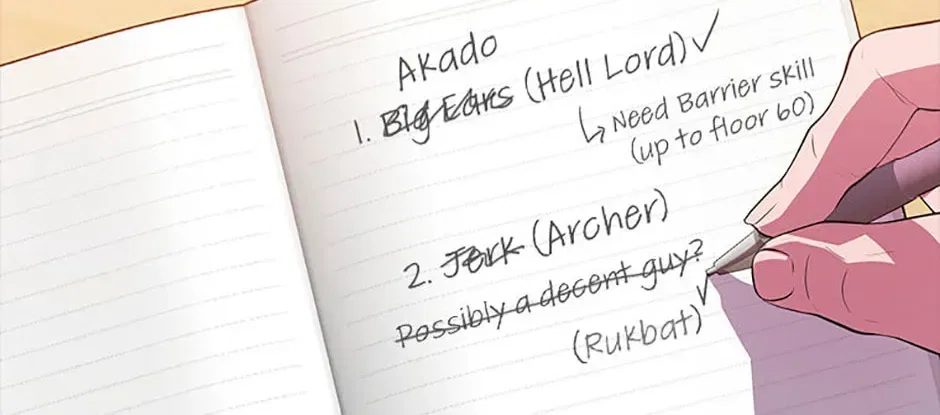 Akado
1. Big Ears (Hell Lord) ✓
↳ Need Barrier skill
(up to floor 60)
2. Jerk (Archer)
Possibly a decent guy?
(Rukbat) ✓